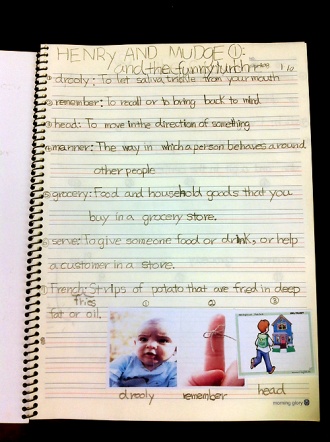 HENRY AND MUDGE ①:
and the funny lunch
① drooly: To let saliva trickle from your mouth
② remember: To recall or to bring back to mind
③ head: To move in the direction of something
④ manner: The way in which a person behaves around
other people
⑤ grocery: Food and household goods that you
buy in a grocery store.
⑥ serve: To give someone food or drink, or help
a customer in a store.
⑦ French: Strips of potato that are fried in deep
fries ① ② ③
fat or oil.
drooly remember head
morning glory